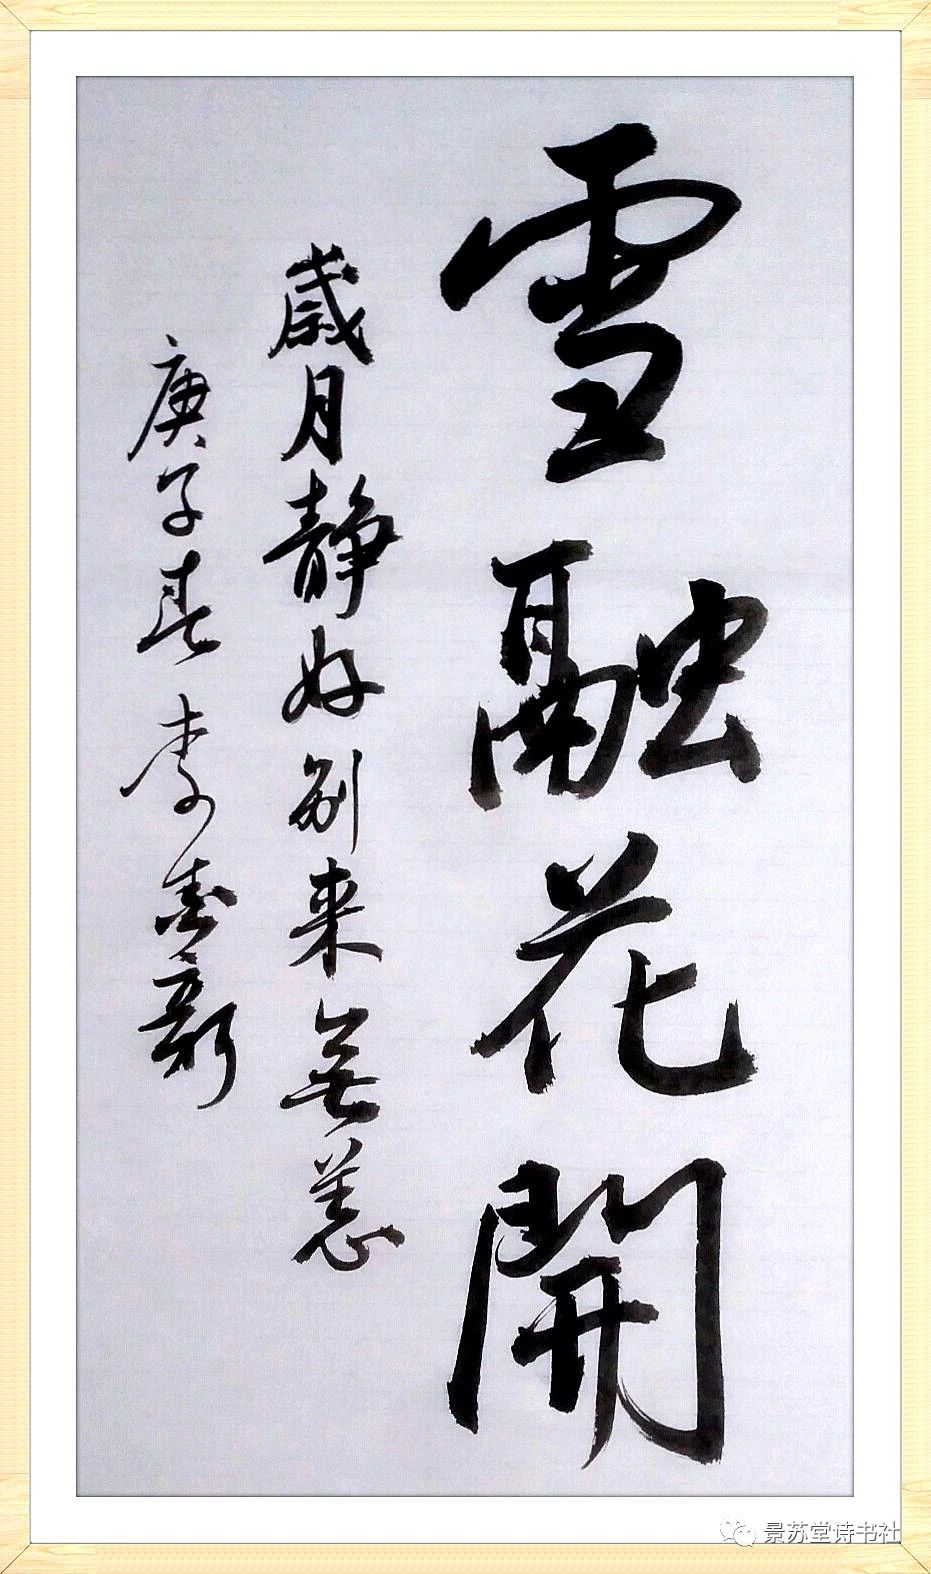 雪融花開
歲月静好别来無恙
庚子春李春新
景苏堂诗书社